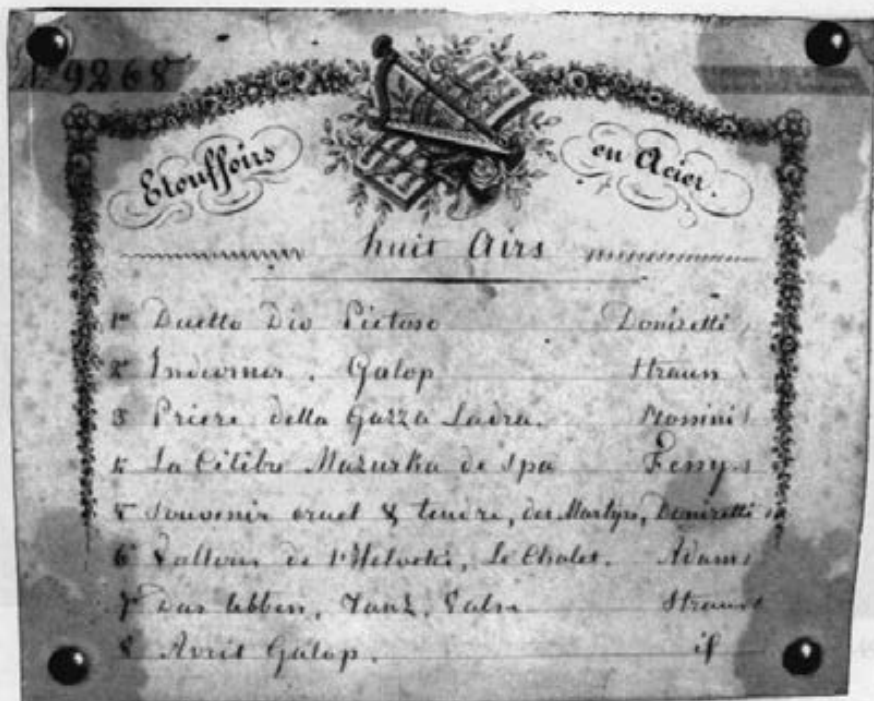 № 9268
Etouffoirs en Acier.
huit Airs
1er Duetto Dio Pietoso Donizetti
2e Galop Strauss
3 Priere della Gazza Ladra. Rossini
4 La Célèbre Mazurka de Spa Fessy
5e Souvenir cruel & tendre, des Martyrs, Donizetti
6e Vallons de l'Helvetie, Le Chalet. Adam
7e Das Lebben, Tanz, Valse Strauss
8 Avril Galop. if